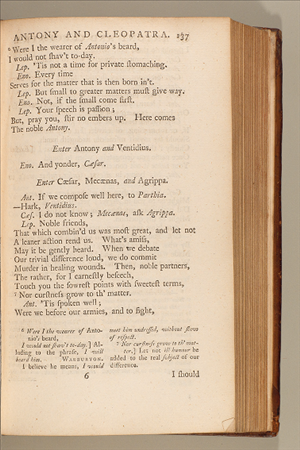 ANTONY AND CLEOPATRA. 137
⁶ Were I the wearer of Antonio's beard,
I would not ſhav't to-day.
Lep. 'Tis not a time for private ſtomaching.
Eno. Every time
Serves for the matter that is then born in't.
Lep. But ſmall to greater matters muſt give way.
Eno. Not, if the ſmall come firſt.
Lep. Your ſpeech is paſſion;
But, pray you, ſtir no embers up. Here comes
The noble Antony.
Enter Antony and Ventidius.
Eno. And yonder, Cæſar.
Enter Cæſar, Mecænas, and Agrippa.
Ant. If we compoſe well here, to Parthia.
—Hark, Ventidius.
Cæſ. I do not know; Mecænas, aſk Agrippa.
Lep. Noble friends,
That which combin'd us was moſt great, and let not
A leaner action rend us. What's amiſs,
May it be gently heard. When we debate
Our trivial difference loud, we do commit
Murder in healing wounds. Then, noble partners,
The rather, for I earneſtly beſeech,
Touch you the ſowreſt points with ſweeteſt terms,
⁷ Nor curſtneſs grow to th' matter.
Ant. 'Tis ſpoken well;
Were we before our armies, and to fight,
⁶ Were I the wearer of Antonio's beard,
I would not ſhav't to-day.] Alluding to the phraſe, I will
beard him. WARBURTON.
I believe he means, I would
meet him undreſſed, without ſhew
of reſpect.
⁷ Nor curſtneſs grow to th' matter.] Let not ill-humour be
added to the real ſubject of our
difference.
6
I ſhould